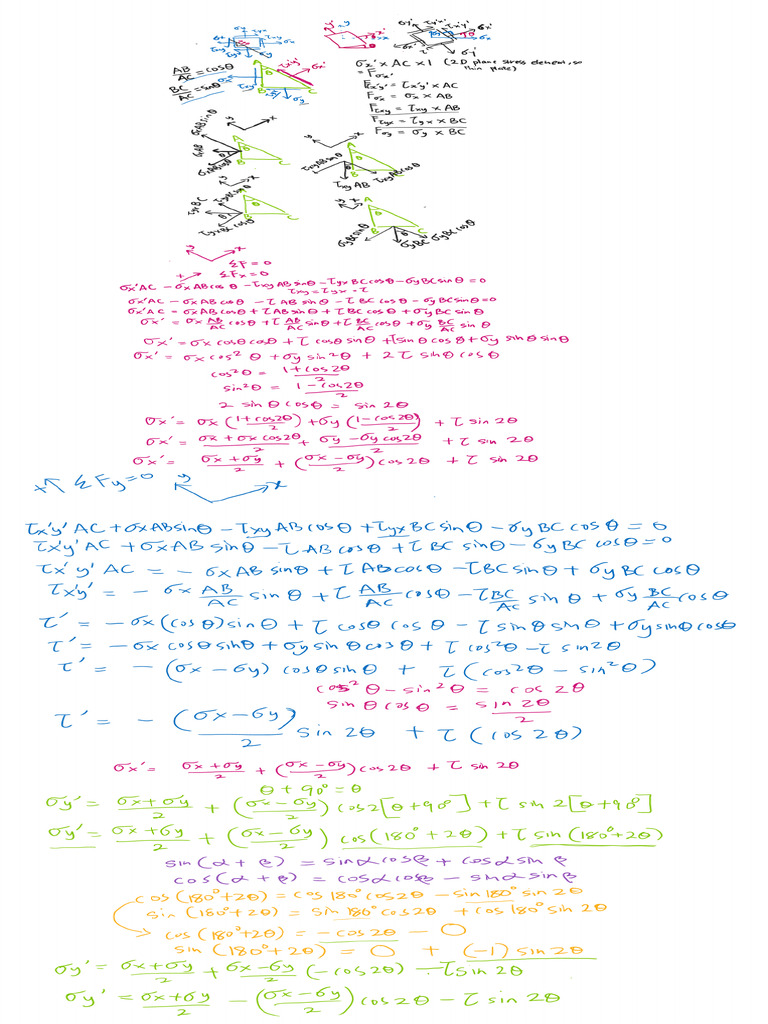 AB/AC = cosθ
BC/AC = sinθ
σx' × AC × 1 (2D plane stress element, so thin plate)
= Fσx'
Fτx'y' = τx'y' × AC
Fσx = σx × AB
Fτxy = τxy × AB
Fτyx = τyx × BC
Fσy = σy × BC
σxAB sinθ
σxAB
σxABcosθ
τxyABsinθ
τxy AB
τxyABcosθ
τyxBC
τyxBCsinθ
τyxBC cosθ
σyBCsinθ
σyBC
σyBCcosθ
y x
ΣF=0
+ ΣFx=0
σx'AC − σxABcosθ − τxyABsinθ − τyxBCcosθ − σyBCsinθ = 0
τxy = τyx = τ
σx'AC − σxABcosθ − τABsinθ − τBCcosθ − σyBCsinθ = 0
σx'AC = σxABcosθ + τABsinθ + τBCcosθ + σyBCsinθ
σx' = σx AB/AC cosθ + τ AB/AC sinθ + τ BC/AC cosθ + σy BC/AC sinθ
σx' = σx cosθcosθ + τ cosθsinθ + τsinθcosθ + σy sinθsinθ
σx' = σx cos²θ + σy sin²θ + 2τ sinθcosθ
cos²θ = (1+cos2θ)/2
sin²θ = (1−cos2θ)/2
2 sinθcosθ = sin2θ
σx' = σx ((1+cos2θ)/2) + σy ((1−cos2θ)/2) + τ sin2θ
σx' = (σx + σx cos2θ)/2 + (σy − σy cos2θ)/2 + τ sin2θ
σx' = (σx+σy)/2 + ((σx−σy)/2) cos2θ + τ sin2θ
+ ΣFy=0 y x
τx'y' AC + σxABsinθ − τxyABcosθ + τyxBCsinθ − σyBCcosθ = 0
τx'y' AC + σxAB sinθ − τABcosθ + τBCsinθ − σyBCcosθ = 0
τx'y' AC = − σxABsinθ + τABcosθ − τBCsinθ + σyBCcosθ
τx'y' = − σx AB/AC sinθ + τ AB/AC cosθ − τ BC/AC sinθ + σy BC/AC cosθ
τ' = − σx(cosθ)sinθ + τ cosθcosθ − τ sinθsinθ + σysinθcosθ
τ' = − σx cosθsinθ + σysinθcosθ + τ cos²θ − τ sin2θ
τ' = − (σx − σy) cosθsinθ + τ(cos²θ − sin²θ)
cos²θ − sin²θ = cos2θ
sinθcosθ = sin2θ/2
τ' = − ((σx−σy)/2) sin2θ + τ(cos2θ)
σx' = (σx+σy)/2 + ((σx−σy)/2) cos2θ + τ sin2θ
θ + 90° = θ
σy' = (σx+σy)/2 + ((σx−σy)/2) cos2[θ+90°] + τ sin2[θ+90°]
σy' = (σx+σy)/2 + ((σx−σy)/2) cos(180°+2θ) + τ sin(180°+2θ)
sin(α+β) = sinαcosβ + cosαsinβ
cos(α+β) = cosαcosβ − sinαsinβ
cos(180°+2θ) = cos180°cos2θ − sin180°sin2θ
sin(180°+2θ) = sin180°cos2θ + cos180°sin2θ
cos(180°+2θ) = −cos2θ − 0
sin(180°+2θ) = 0 + (−1) sin2θ
σy' = (σx+σy)/2 + (σx−σy)/2 (−cos2θ) − τsin2θ
σy' = (σx+σy)/2 − ((σx−σy)/2) cos2θ − τ sin2θ